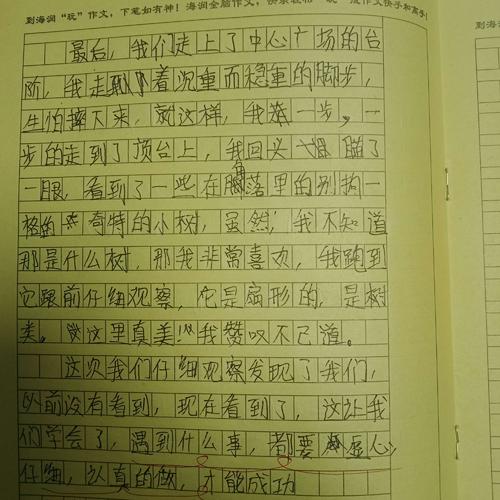 到海润“玩”作文，下笔如有神！海润全脑作文，快乐轻松“玩”成作文快手和高手！
到海润
最后，我们走上了中心广场的台
阶，我走到着沉重而稳重的脚步，
生怕摔下来，就这样，我一步，一
步的走到了顶台上，我回头瞄了
一眼，看到了一些在角落里的别拘一
格的奇特的小树，虽然，我不知道
那是什么树，那我非常喜欢，我跑到
它跟前仔细观察，它是扇形的，是树
类。这里真美!我赞叹不已道。
这次我们仔细观察发现了我们，
以前没有看到，现在看到了，这让我
们学会了，遇到什么事，都要虚心，
仔细，认真的做，才能成功